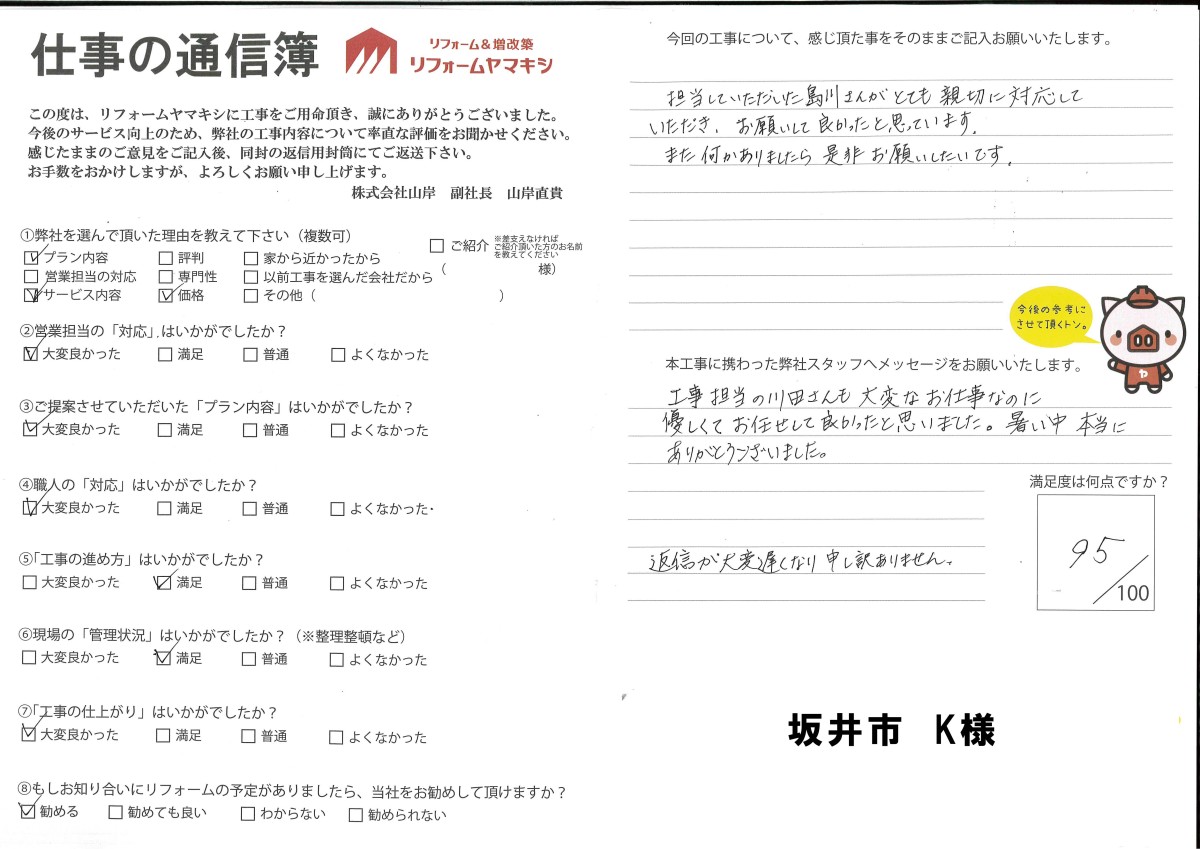 仕事の通信簿
リフォーム＆増改築
リフォームヤマキシ
この度は、リフォームヤマキシに工事をご用命頂き、誠にありがとうございました。
今後のサービス向上のため、弊社の工事内容について率直な評価をお聞かせください。
感じたままのご意見をご記入後、同封の返信用封筒にてご返送下さい。
お手数をおかけしますが、よろしくお願い申し上げます。
株式会社山岸　副社長　山岸直貴
①弊社を選んで頂いた理由を教えて下さい（複数可）
☑プラン内容 □評判 □家から近かったから □ご紹介 ※差支えなければ
ご紹介頂いた方のお名前
を教えてください
□営業担当の対応 □専門性 □以前工事を選んだ会社だから （　　　　様）
☑サービス内容 ☑価格 □その他（　　　　）
②営業担当の「対応」はいかがでしたか？
☑大変良かった □満足 □普通 □よくなかった
③ご提案させていただいた「プラン内容」はいかがでしたか？
☑大変良かった □満足 □普通 □よくなかった
④職人の「対応」はいかがでしたか？
☑大変良かった □満足 □普通 □よくなかった
⑤「工事の進め方」はいかがでしたか？
□大変良かった ☑満足 □普通 □よくなかった
⑥現場の「管理状況」はいかがでしたか？（※整理整頓など）
□大変良かった ☑満足 □普通 □よくなかった
⑦「工事の仕上がり」はいかがでしたか？
☑大変良かった □満足 □普通 □よくなかった
⑧もしお知り合いにリフォームの予定がありましたら、当社をお勧めして頂けますか？
☑勧める □勧めても良い □わからない □勧められない
今回の工事について、感じ頂た事をそのままご記入お願いいたします。
担当していただいた島川さんがとても親切に対応して
いただき、お願いして良かったと思っています。
また何かありましたら是非お願いしたいです。
今後の参考に
させて頂くトン。
ヤ
本工事に携わった弊社スタッフへメッセージをお願いいたします。
工事担当の川田さんも大変なお仕事なのに
優しくてお任せして良かったと思いました。暑い中本当に
ありがとうございました。
満足度は何点ですか？
95
/100
返信が大変遅くなり申し訳ありません。
坂井市　K様